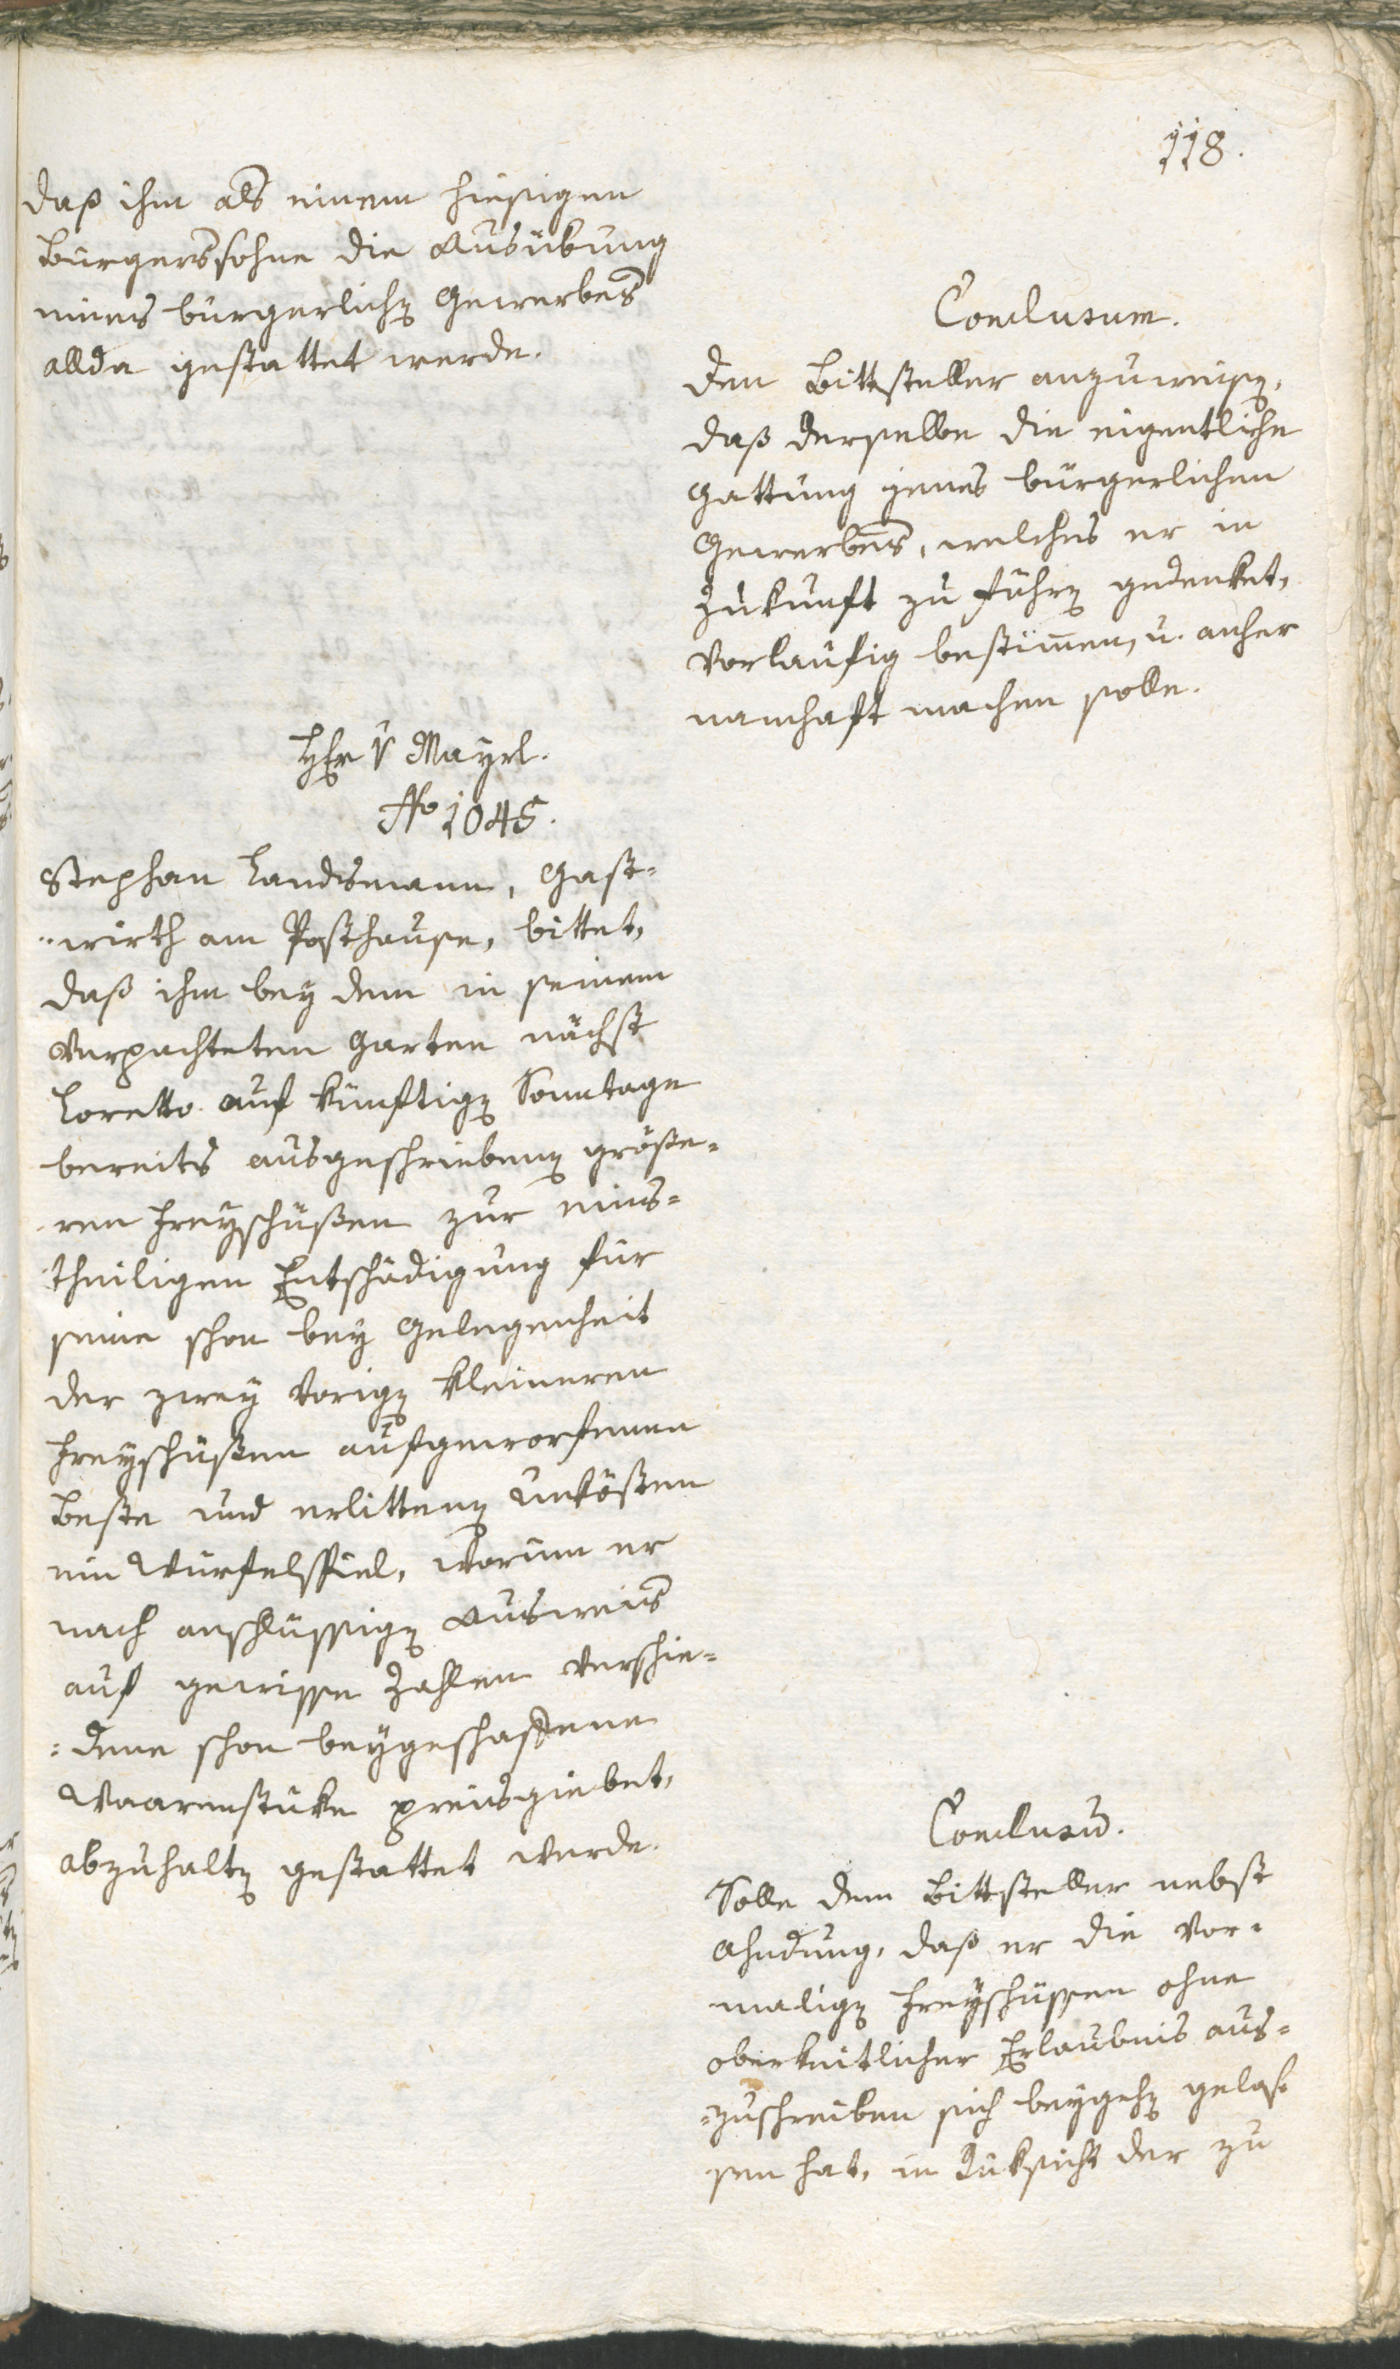 118.
daß ihm als einem hiesigen
Bürgerssohne die Ausübung
eines bürgerlichen Gewerbes
allda gestattet werde.
Conclusum.
Den Bittsteller anzuweisen,
daß derselbe die eigentliche
Gattung jenes bürgerlichen
Gewerbes, welches er in
Zukunft zu führen gedenket,
vorläufig bestim̄en, u. anher
namhaft machen solle.
Hr v Mayrl.
No 1045.
Stephan Landsmann, Gast-
-wirth am Posthause, bittet,
daß ihm bey dem in seinem
verpachteten Garten nächst
Loretto auf künftigen Sonntage
bereits ausgeschriebenen größe-
ren Freyschüßen zur eins-
theiligen Entschädigung für
seine schon bey Gelegenheit
der zwey vorigen kleineren
Freyschüßen aufgeworfenen
Beste und erlittenen Unkösten
ein Würfelspiel, worum er
nach anschlüssigen Ausweis
auf gewisse Zahlen verschie-
-dene schon beygeschaffene
Waarenstüke preisgiebet,
abzuhalten gestattet werde.
Conclusū.
Solle dem Bittsteller nebst
Ahndung, daß er die vor-
maligen Freyschüssen ohne
oberkeitlicher Erlaubnis aus-
-zuschreiben sich beygehen gelas-
sen hat, in Rüksicht der zu